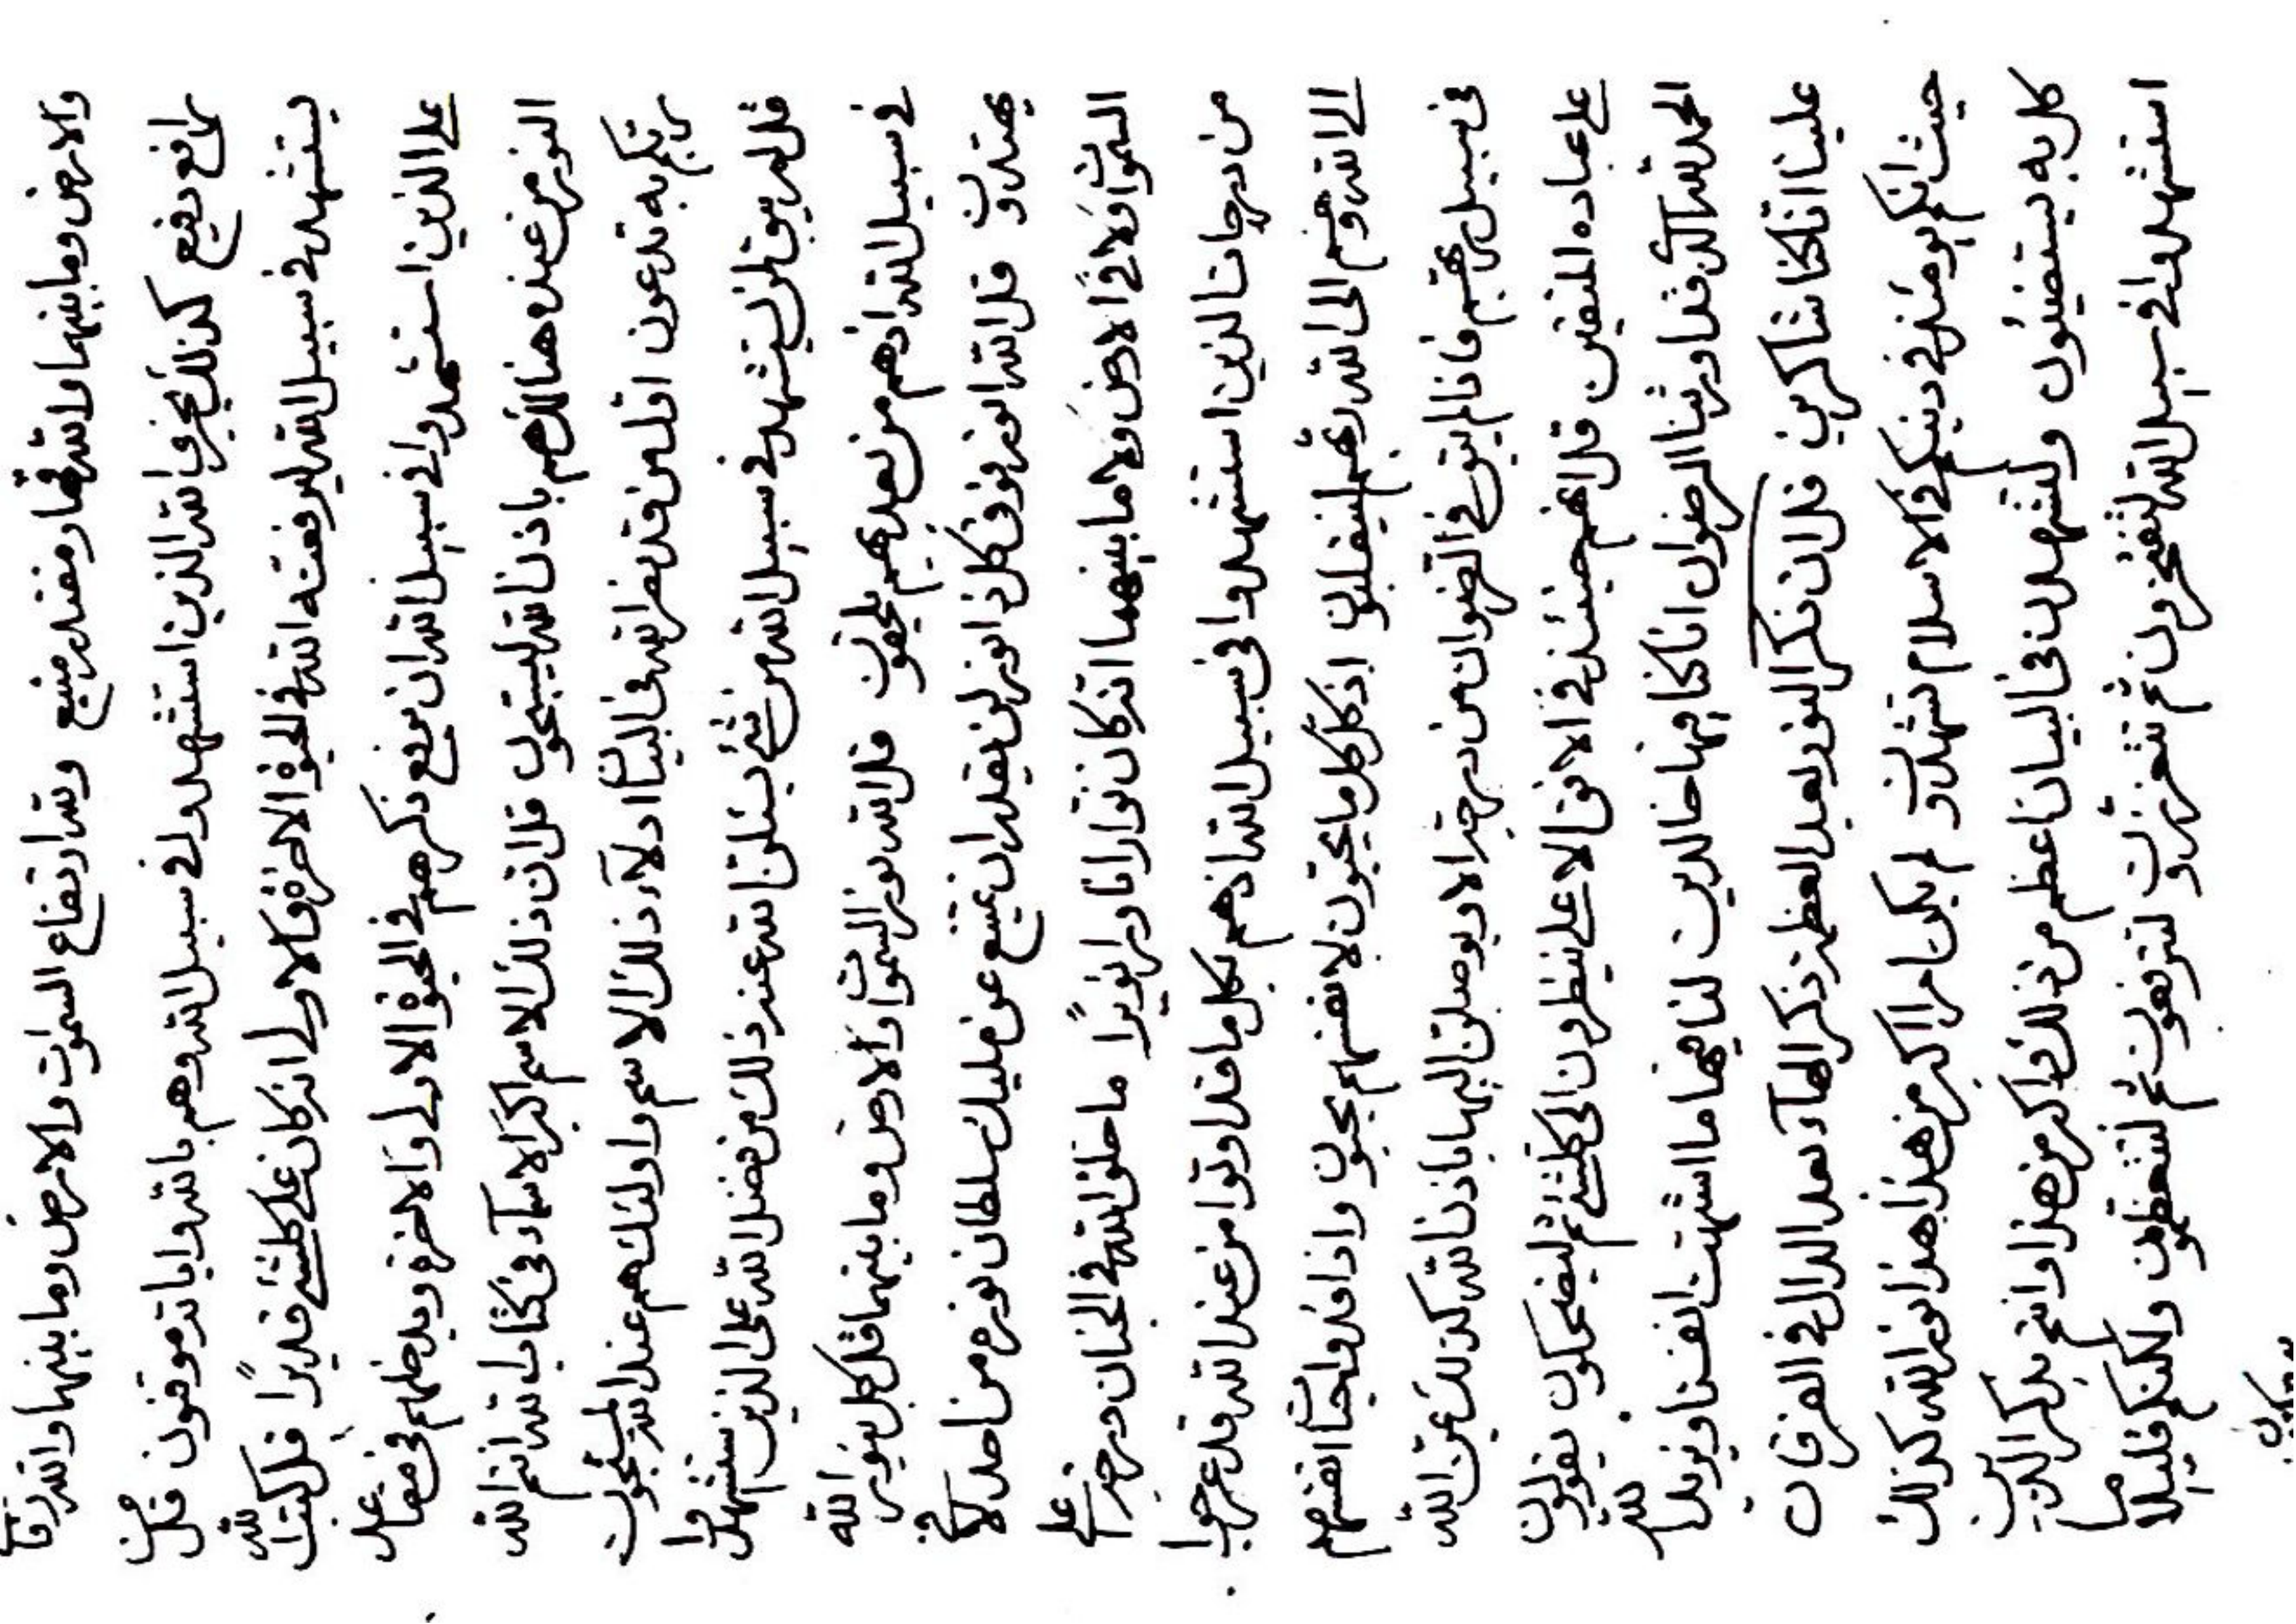 والارض وما بينهما والله قهار مقتدر منيع ولله ارتفاع السموات والارض وما بينهما والله رفاع
رافع رفيع كذلك يجزي الله الذين استشهدوا في سبيل الله وهم بالله واياته موقنون قل من
يستشهد في سبيل الله ليرفعنه الله في الحيوة الاخرة والاولى انه كان على كلشئ قديرًا قل كتب الله
على الذين استشهدوا في سبيل الله ان يرفع ذكرهم في الحيوة الاولى والاخرة ويدخلهم في مقاعد
النور من عنده هنالك هم باذن الله قل ان ذلك الاسم اكبر الاسماء في كتاب الله انتم الله
ربكم به تدعون اول من قد نصر الله في البيان ادلاء ذلك الاسم واولئك هم عند الله
قل لم يبق لمن يستشهد في سبيل الله من شئ يسئلن الله عند ذلك من فضل الله على الذين استشهدوا
في سبيل الله اذهم من بعد بهم يلحقون قل الله نور السموات والارض وما بينهما قل كل بنور الله
يهتدون قل الله انور فوق كل ذا انور لن يقدر ان يمتنع عن مليك سلطان نوره من احد لا في
السموات ولا في الارض ولا ما بينهما انه كان نوارا ناورا نويرًا ما خلق الله في الجنان درجة اعلى
من درجات الذين استشهدوا في سبيل الله اذهم بكل ما قد اوتوا من عند الله قد عرجوا
الى الله وهم الى الله ربهم لينقلبون اذ كل كل ما يحبون لانفسهم يحبون واذا فدوا انفسهم
في سبيل ربهم فاذا لم يبق في الرضوان من درجة الا ويوصلن اليها باذن الله كذلك يمن الله
على عباده المتقين قل انهم حينئذ في الافق الاعلى ينظرون الى كلشئ ثم ليضحكون يقولون
الحمد لله الذي قد اورثنا الرضوان انا كنا فيها خالدين لنا فيها ما اشتهت انفسنا ويزيد الله
علينا انا كنا شاكرين قل ان ذكر النور بعد العظم ذكر الهاء بعد الدال في الفرقان
حيث انكم يومئذ في دينكم في الاسلام تشهدون لم يكن امرا اكبر من هذا هذا نور الله كذلك
كل به يستضيئون ولتشهدن في البيان اعظم من ذلك واكبر من هذا وانتم بذكر الذين
استشهدوا في سبيل الله لتفتخرون ثم تتعززون لترفعون ثم لتتعظمون ولكنكم قليلا ما